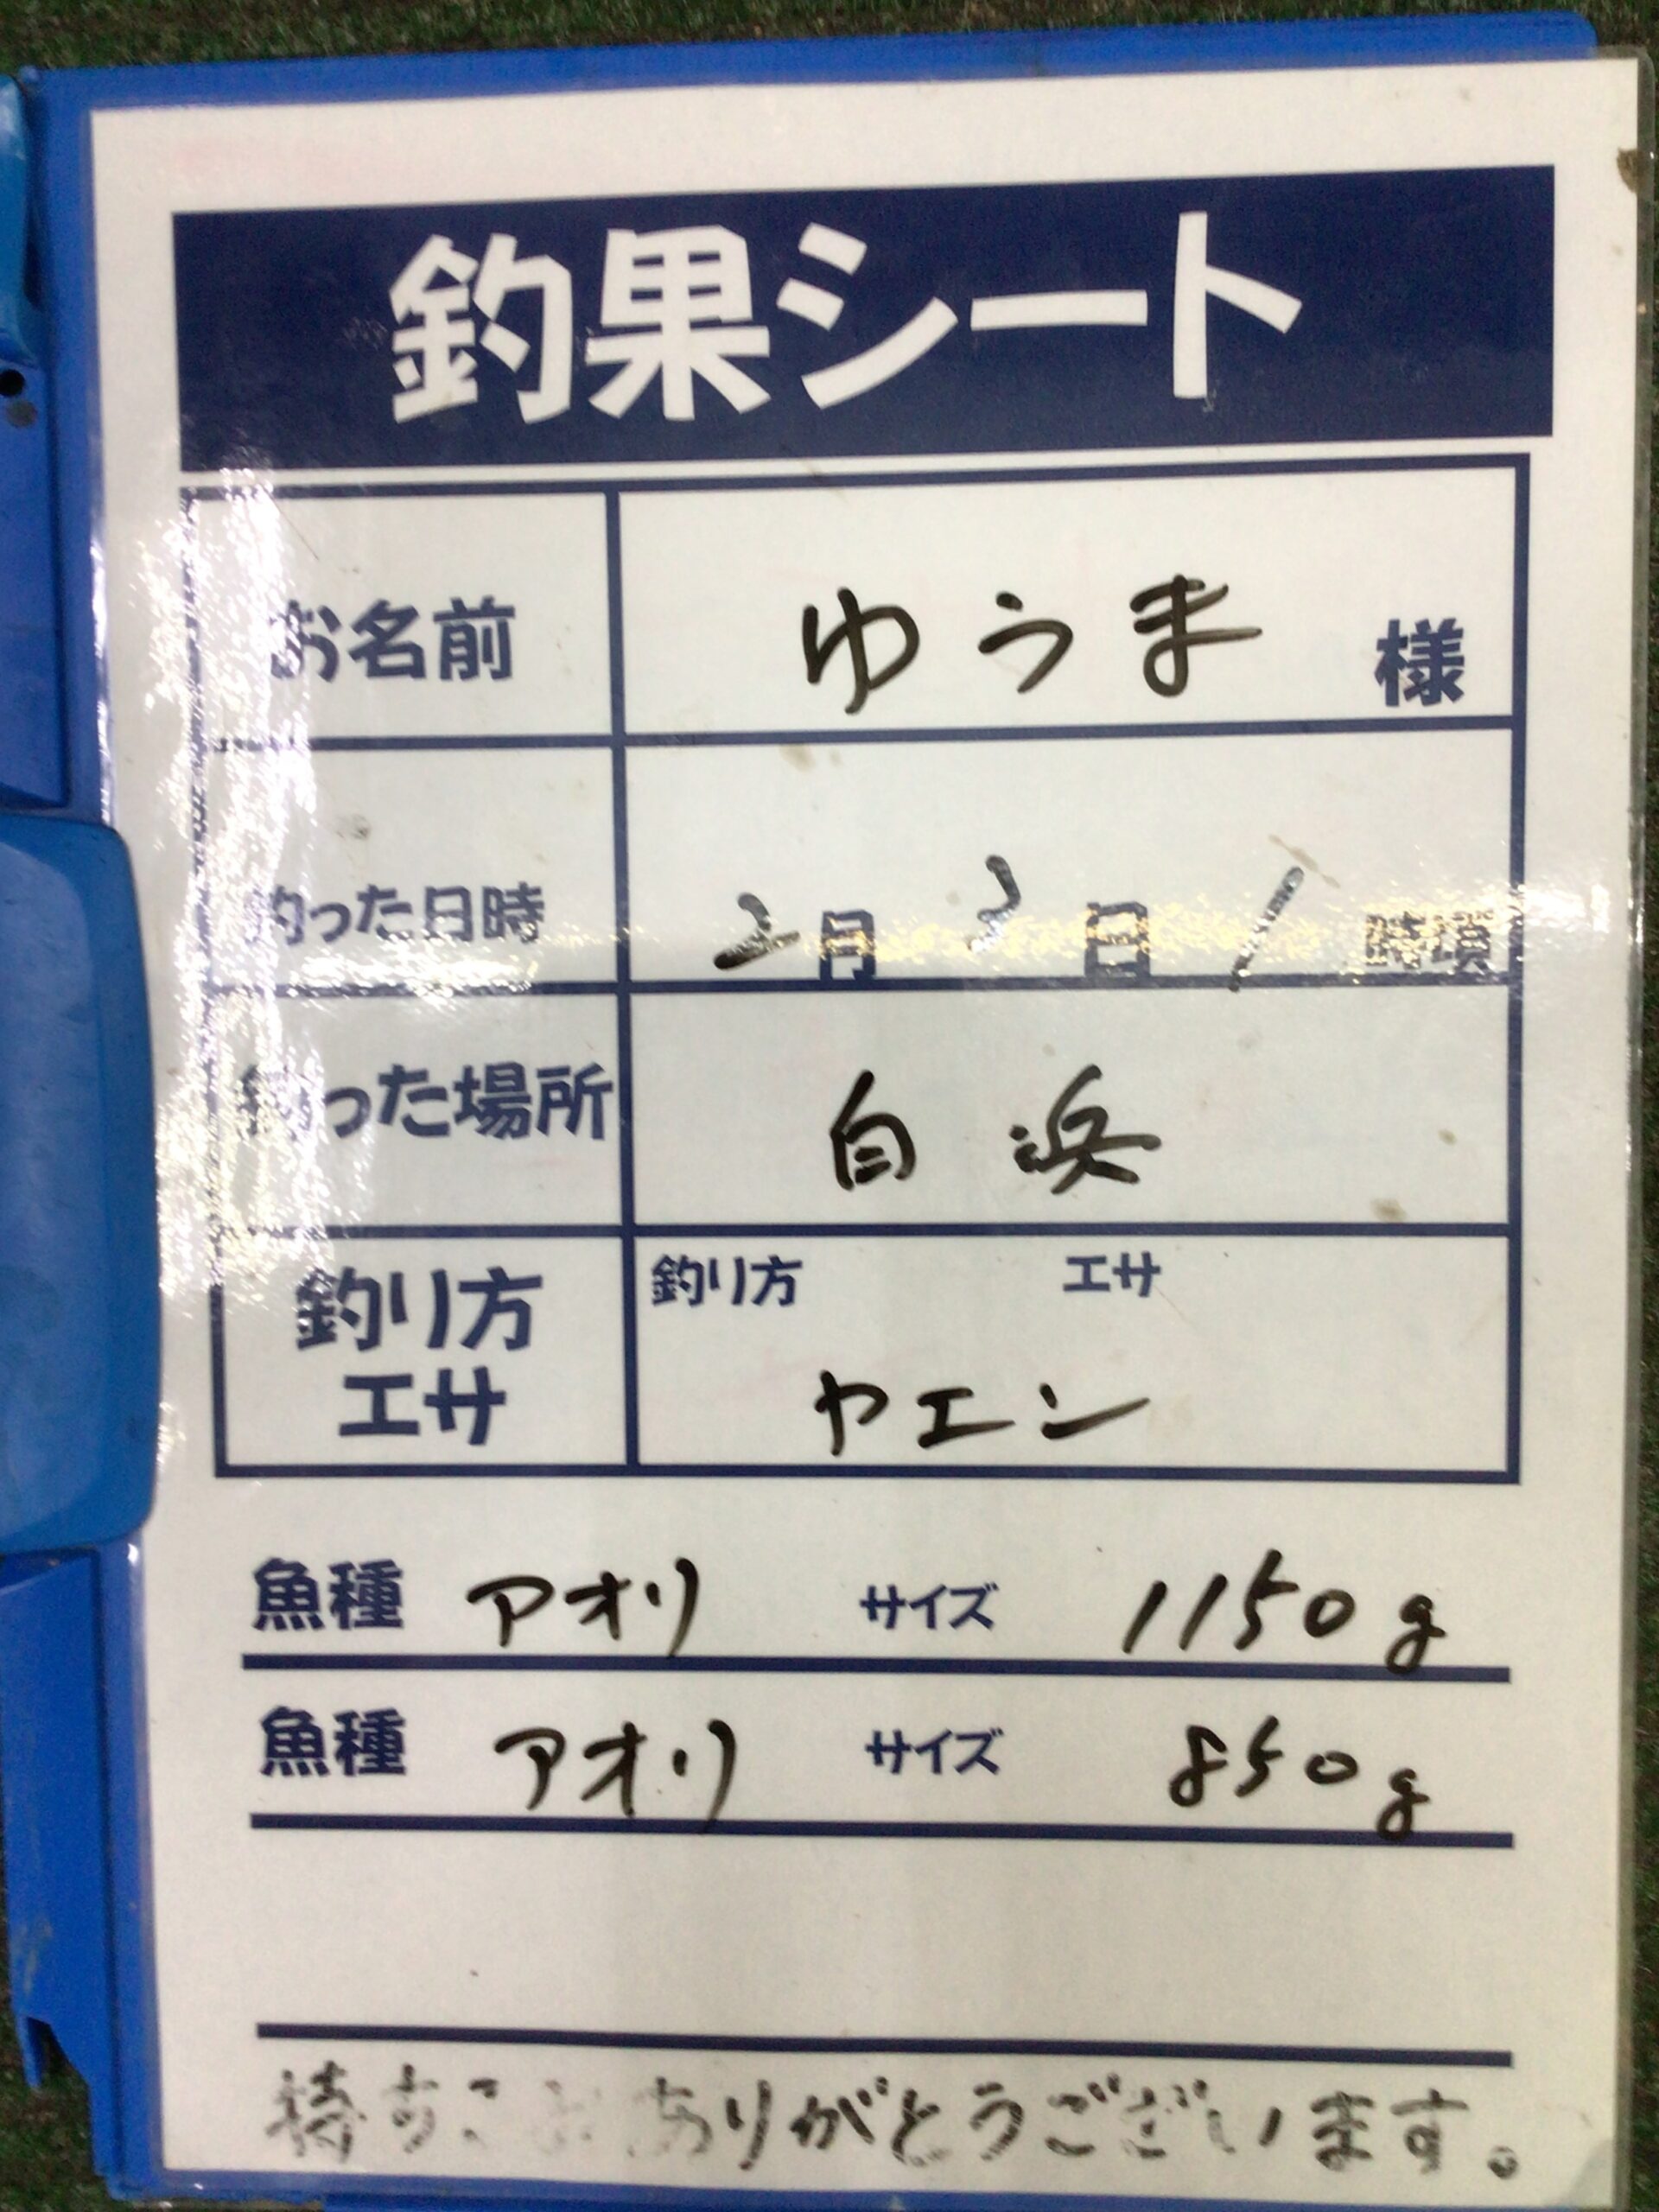 釣果シート
お名前 ゆうま 様
釣った日時 2月 3日 1 時頃
釣った場所 白浜
釣り方 エサ
釣り方
エサ
ヤエン
魚種 アオリ サイズ 1150g
魚種 アオリ サイズ 850g
ありがとうございます。